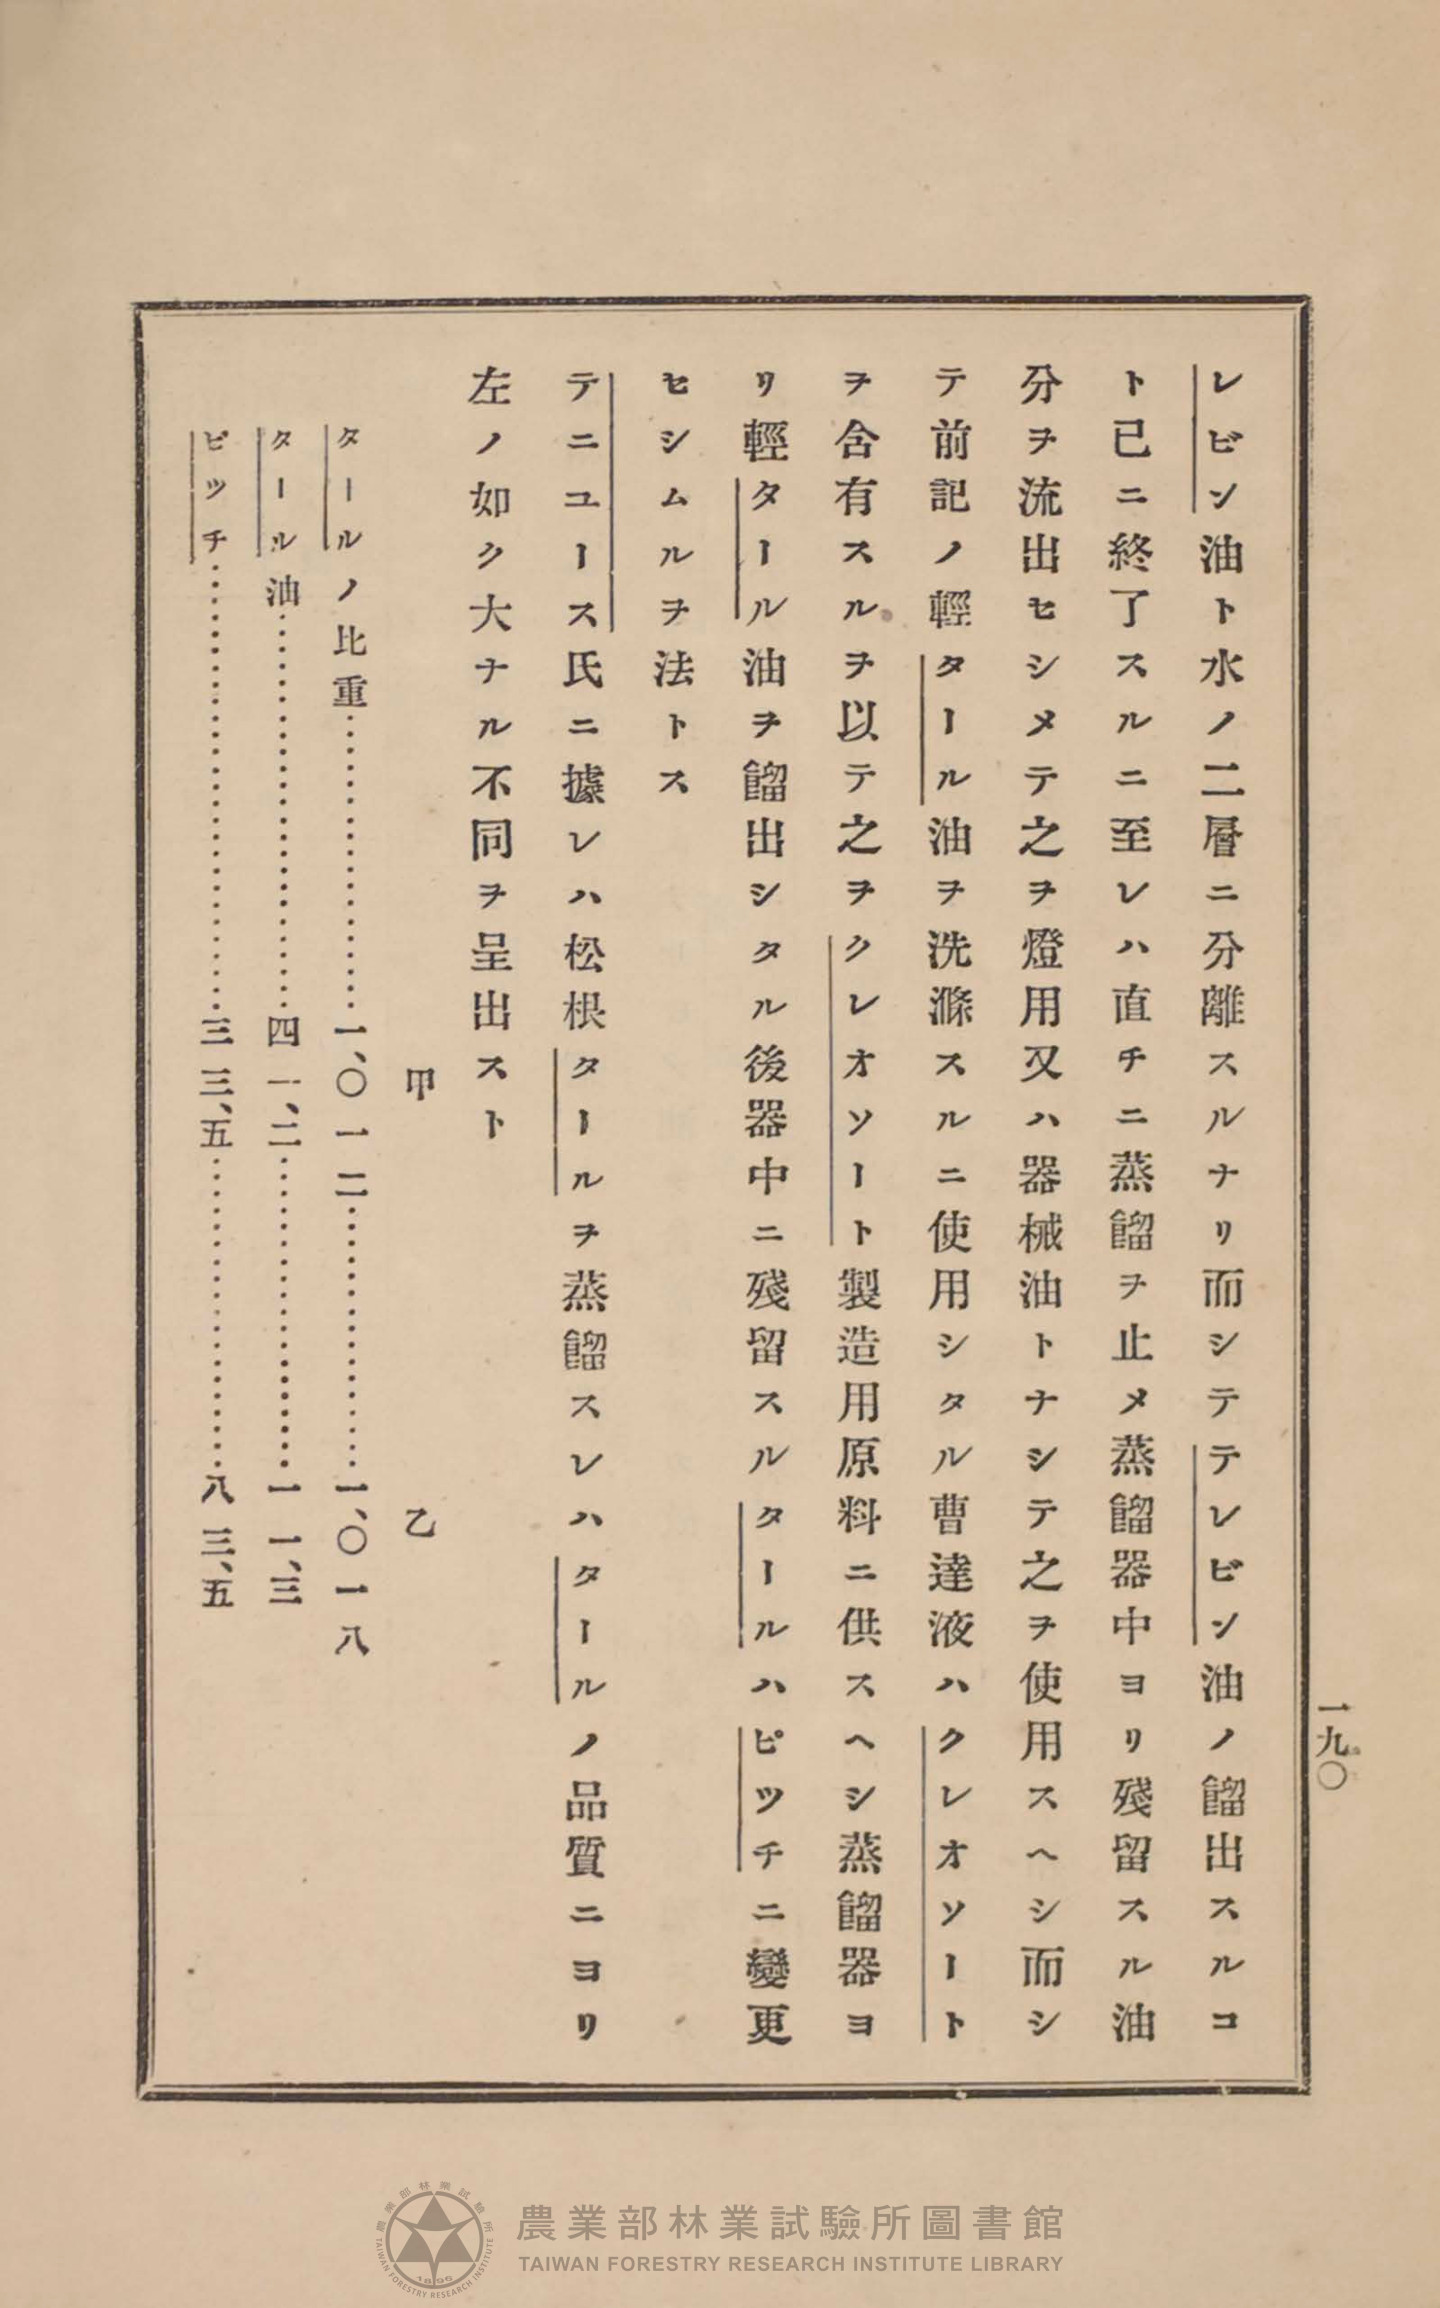 レビン油ト水ノ二層ニ分離スルナリ而シテテレビン油ノ餾出スルコ
ト已ニ終了スルニ至レハ直チニ蒸餾ヲ止メ蒸餾器中ヨリ殘留スル油
分ヲ流出セシメテ之ヲ燈用又ハ器械油トナシテ之ヲ使用スヘシ而シ
テ前記ノ輕タール油ヲ洗滌スルニ使用シタル曹達液ハクレオソート
ヲ含有スルヲ以テ之ヲクレオソート製造用原料ニ供スヘシ蒸餾器ヨ
リ輕タール油ヲ餾出シタル後器中ニ殘留スルタールハピツチニ變更
セシムルヲ法トス
テニユース氏ニ據レハ松根タールヲ蒸餾スレハタールノ品質ニヨリ
左ノ如ク大ナル不同ヲ呈出スト
甲 乙
タールノ比重……………………一、〇一二……………………一、〇一八
タール油……………………四一、二……………………一一、三
ピツチ……………………三三、五……………………八三、五
一九〇
農業部林業試驗所圖書館
TAIWAN FORESTRY RESEARCH INSTITUTE LIBRARY
農業部林業試驗所
TAIWAN FORESTRY RESEARCH INSTITUTE
1896